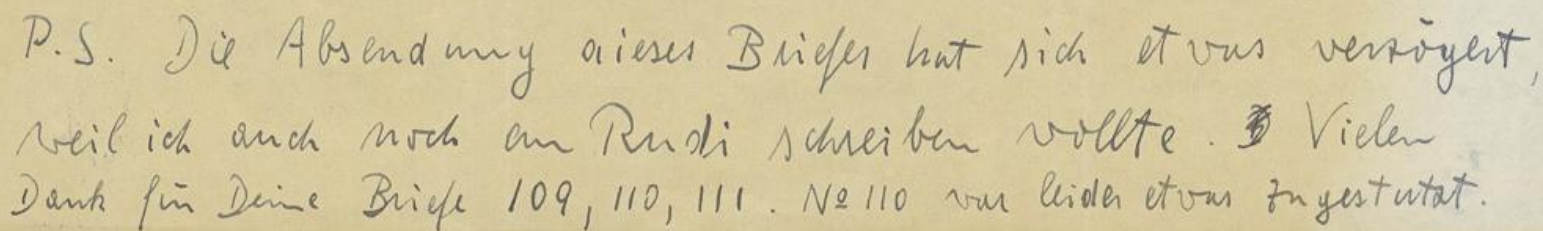 P.S. Die Absendung dieses Briefes hat sich etwas verzögert,
weil ich auch noch an Rudi schreiben wollte. Vielen
Dank für Deine Briefe 109, 110, 111. No 110 war leider etwas zugestutzt.